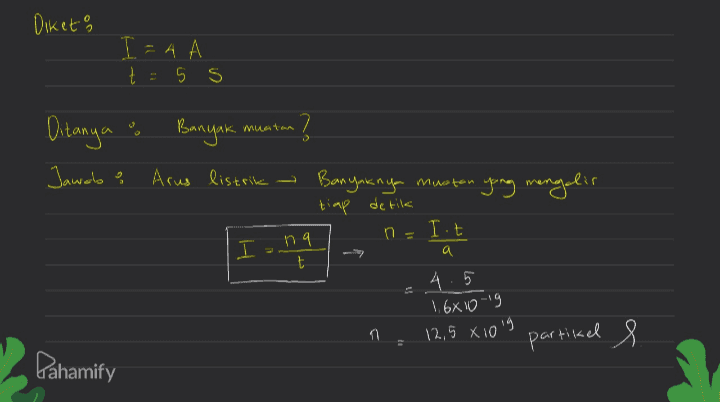 Diket :
I = 4 A
t = 5 s
Ditanya : Banyak muatan ?
Jawab : Arus listrik → Banyaknya muatan yang mengalir
tiap detik
I = nq/t → n = I.t/q
= 4.5/1,6x10-19
n = 12,5 x 10 19 partikel
Pahamify